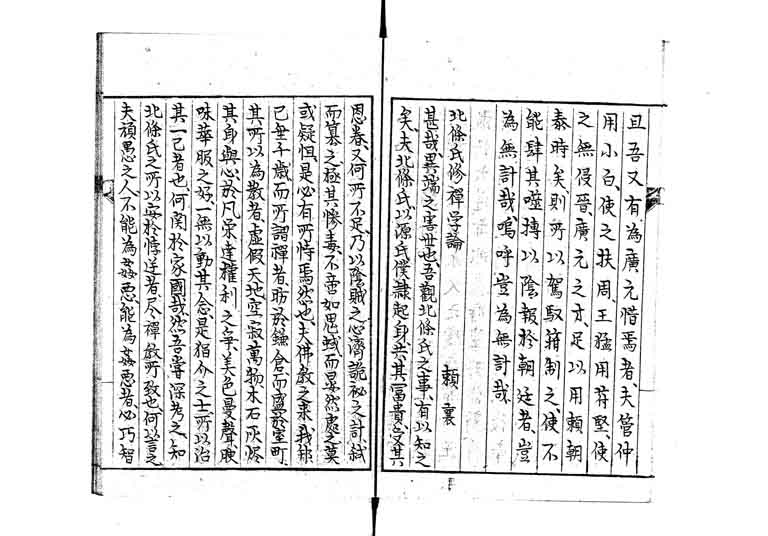 且吾又有為廣元惜焉者、夫管仲
用小白、使之扶周、王猛用苻堅、使
之無侵晉、廣元之才、足以用賴朝
泰時矣、則所以駕馭箝制之、使不
能肆其噬搏、以陰報於朝廷者、豈
為無計哉、嗚呼豈為無計哉
北條氏修禪学論
賴襄
甚哉、異端之害世也、吾觀北條氏之事、有以知之
矣、夫北條氏、以源氏僕隸起身、共其冨貴、受其
恩眷、又何所不足、乃以陰賊之心、濟詭秘之計、弑
而簒之、極其惨毒、不啻如鬼蜮、而晏然處之、莫
或疑怛、是心有所恃焉然也、夫佛教之来我邦、
已垂千歳、而所謂禪者、昉於鎌倉、而盛於室町、
其所以為教者、虚假天地、空寂萬物、木石灰燼
其身與心、於凡栄達權利之樂、美色曼聲、腴
味華服之好、一無以動其念、是狷介之士、所以治
其一己者也、何関於家國哉、然吾嘗深考之、知
北條氏之所以安於悖逆者、尽禪教所致也、何以言之、
夫頑愚之人、不能為姦悪、能為姦悪者、必巧智